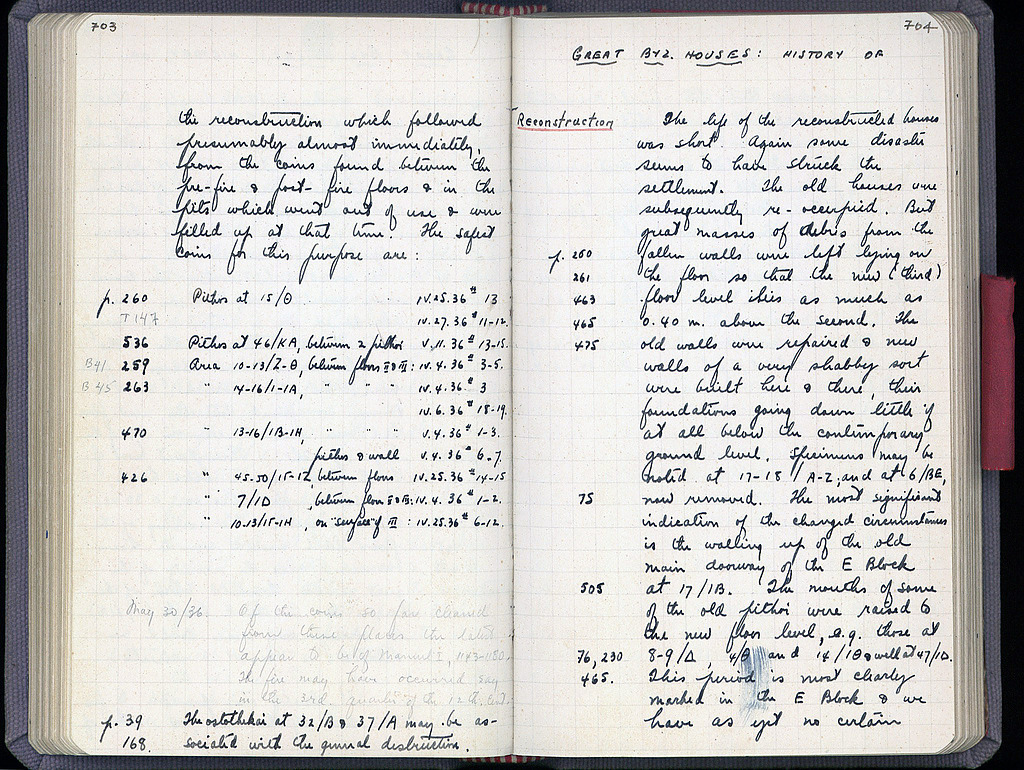 703
the reconstruction which followed
presumably almost immediately,
from the coins found between the
pre-fire & post-fire floors & in the
pits which went out of use & were
filled up at that time. The safest
coins for this purpose are:
p. 260 Pithos at 15/Θ IV.25.36 # 13
T 147 IV.27.36 # 11-12.
536 Pithos at 46/KA, between 2 pithoi V.11.36 # 13-15.
B41 259 Area 10-13/Z-Θ, between floors II & III: IV.4.36 # 3-5.
B45 263 " 14-16/1-1A, " " IV.4.36. # 3
IV.6.36 # 18-19.
470 " 13-16/1B-1H, " " " V.4.36 # 1-3.
pithos & wall V.4.36 # 6-7.
426 " 45-50/15-1Z, between floors IV.25.36 # 14-15
" 7/1D, between floors II & III: IV.4.36 # 1-2.
" 10-13/15-1H, on "surface" of III: IV.25.36 # 6-12.
May 30/36. Of the coins so far cleaned
from these places the latest
appear to be of Manuel I, 1143-1180.
The fire may have occurred say
in the 3rd. quarter of the 12th. cent.
p. 39 The ostothekai at 32/B & 37/A may be as-
168. sociated with the general destruction.
704
GREAT BYZ. HOUSES: HISTORY OF
Reconstruction The life of the reconstructed houses
was short. Again some disaster
seems to have struck the
settlement. The old houses were
subsequently re-occupied. But
great masses of debris from the
p. 250 fallen walls were left lying on
261 the floor so that the new (third)
463 floor level is as much as
465 0.40 m. above the second. The
475 old walls were repaired & new
walls of a very shabby sort
were built here & there, their
foundations going down little if
at all below the contemporary
ground level. Specimens may be
noted at 17-18/A-Z, and at 6/BE,
75 now removed. The most significant
indication of the changed circumstances
is the walling up of the old
main doorway of the E Block
505 at 17/1B. The mouths of some
of the old pithoi were raised to
the new floor level, e.g. those at
76, 230 8-9/Δ, 4/Θ and 14/1Θ & well at 47/1D.
465. This period is most clearly
marked in the E Block & we
have as yet no certain